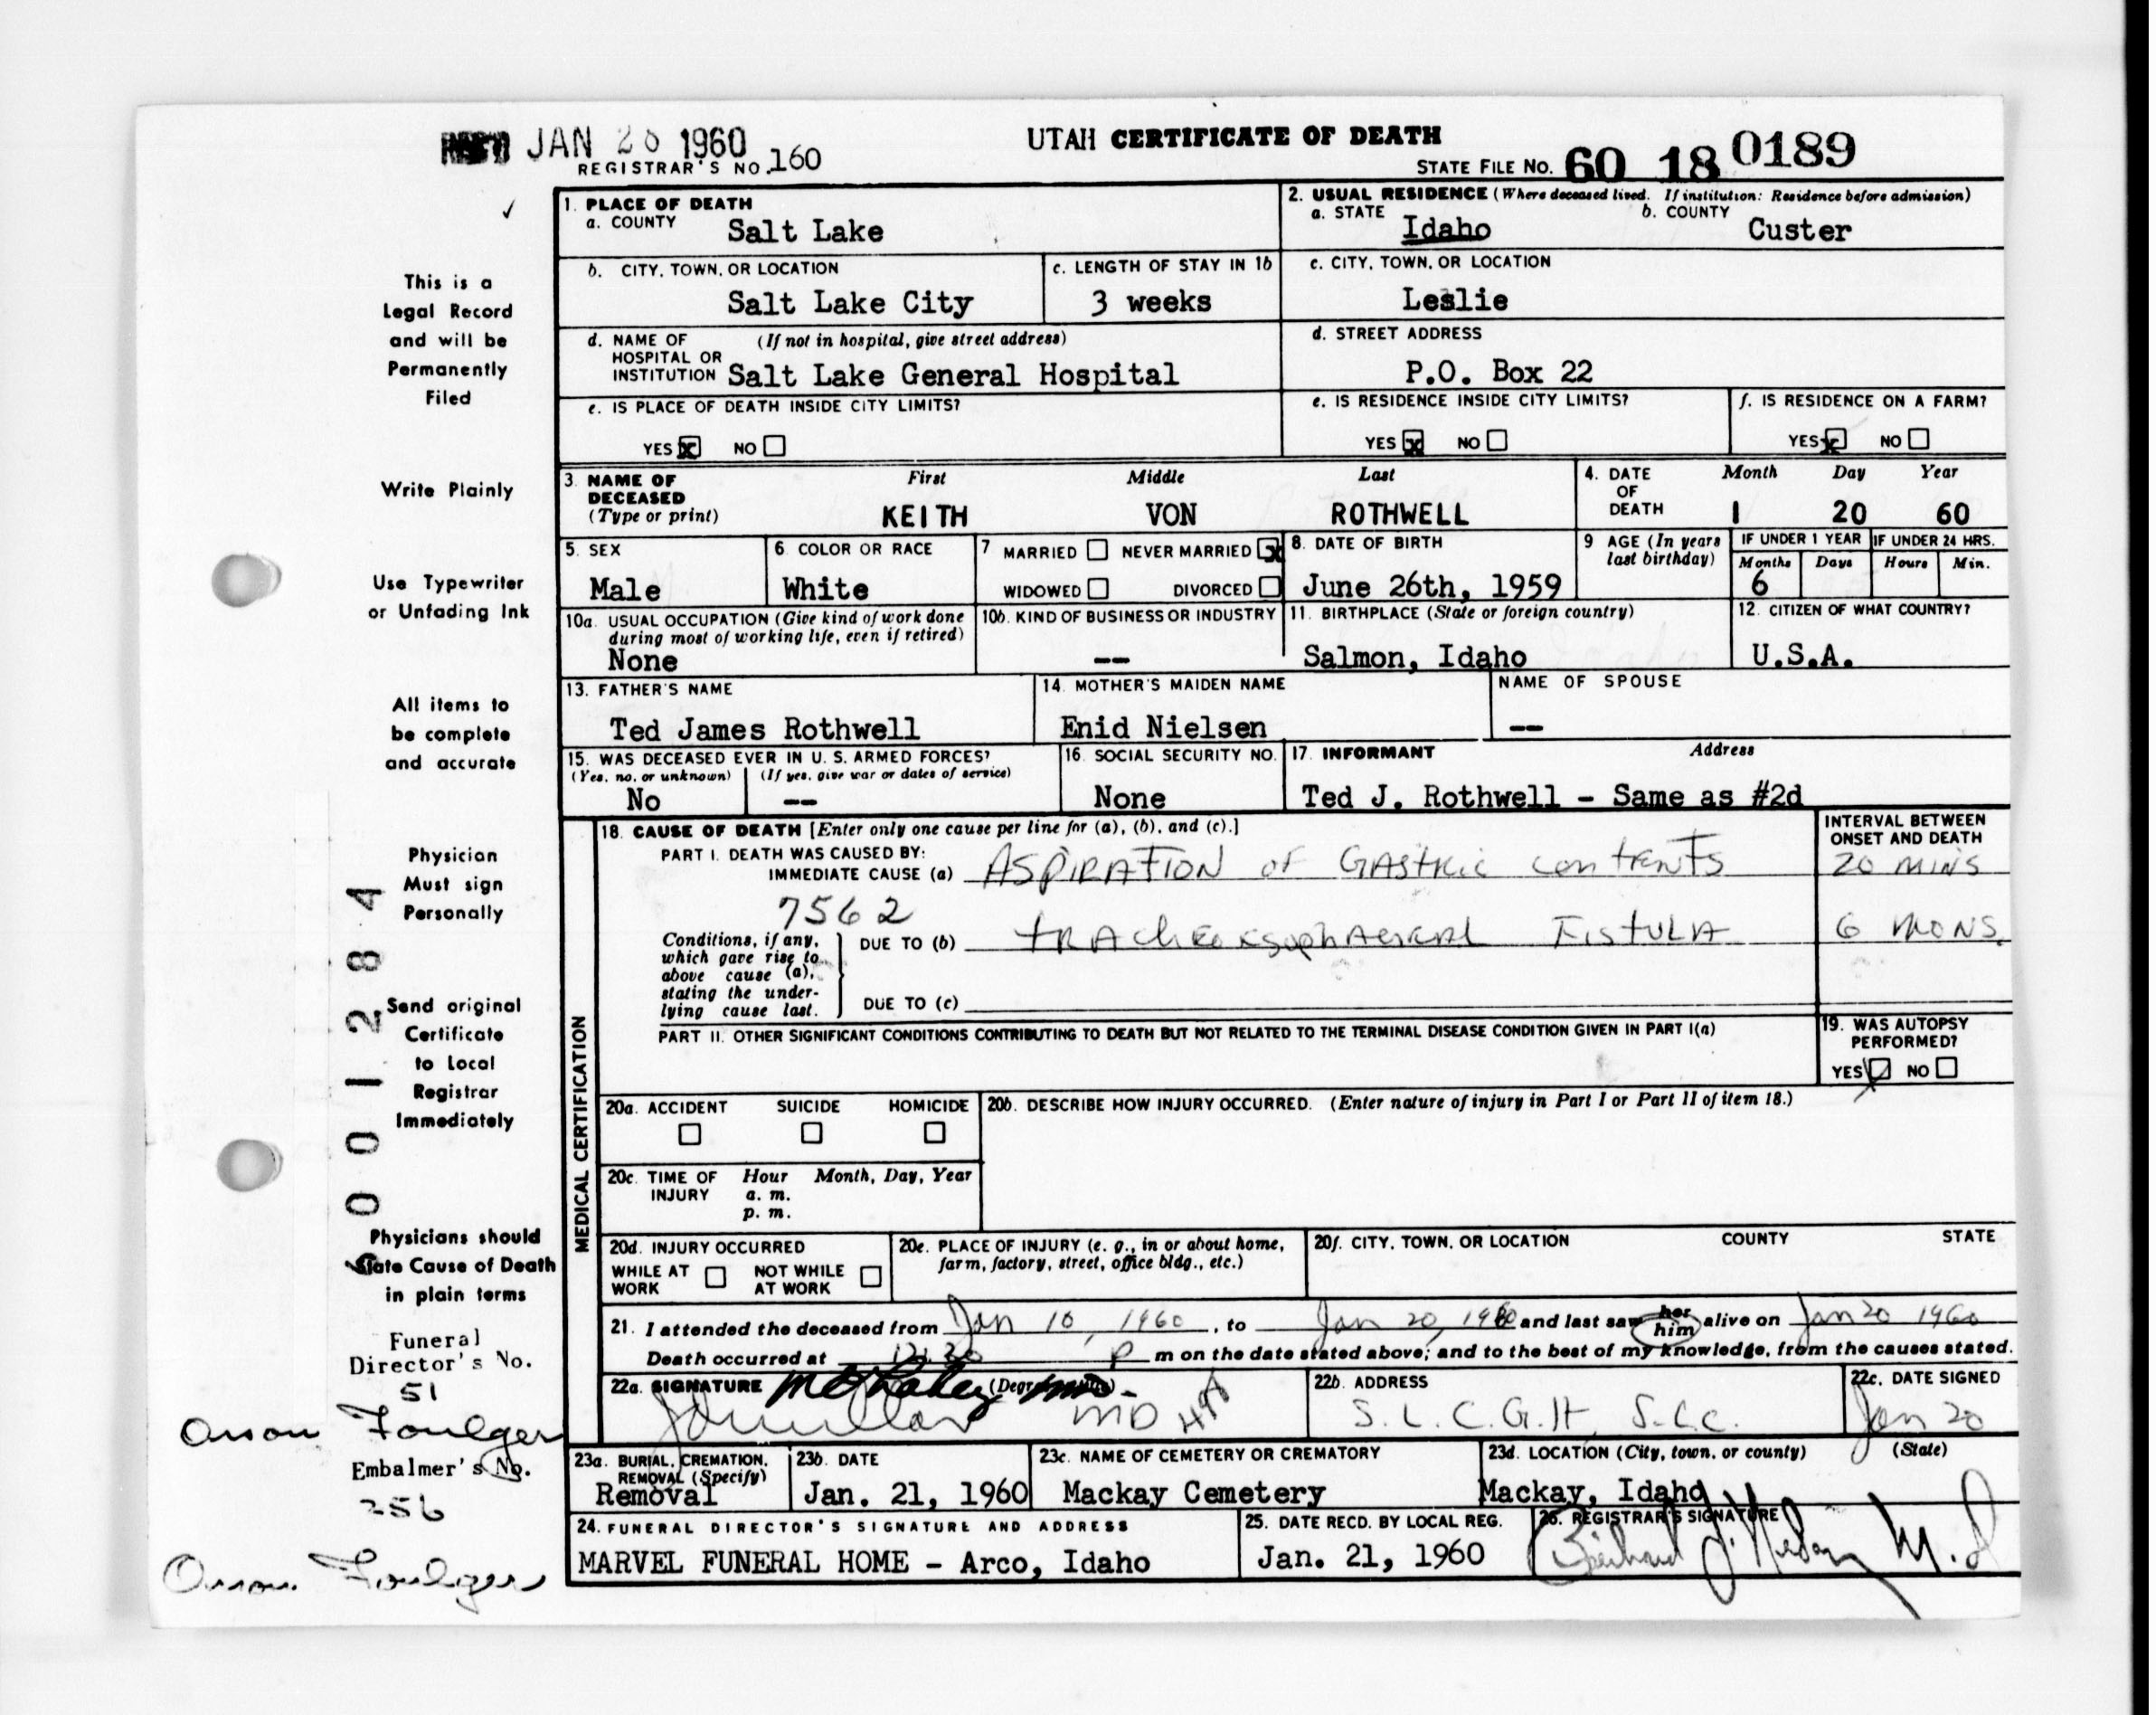 JAN 26 1960
REGISTRAR'S NO. 160
UTAH CERTIFICATE OF DEATH
STATE FILE No. 60 18 0189
This is a
Legal Record
and will be
Permanently
Filed
Write Plainly
Use Typewriter
or Unfading Ink
All items to
be complete
and accurate
Physician
Must sign
Personally
Send original
Certificate
to Local
Registrar
Immediately
Physicians should
State Cause of Death
in plain terms
Funeral
Director's No.
51
Orson Foulger
Embalmer's No.
256
Orson Foulger
001284
1. PLACE OF DEATH
a. COUNTY Salt Lake
2. USUAL RESIDENCE (Where deceased lived. If institution: Residence before admission)
a. STATE Idaho b. COUNTY Custer
b. CITY, TOWN, OR LOCATION Salt Lake City
c. LENGTH OF STAY IN 1b 3 weeks
c. CITY, TOWN, OR LOCATION Leslie
d. NAME OF HOSPITAL OR INSTITUTION (If not in hospital, give street address) Salt Lake General Hospital
d. STREET ADDRESS P.O. Box 22
e. IS PLACE OF DEATH INSIDE CITY LIMITS?
YES x NO
e. IS RESIDENCE INSIDE CITY LIMITS?
YES x NO
f. IS RESIDENCE ON A FARM?
YES x NO
3. NAME OF DECEASED (Type or print)
First Middle Last
KEITH VON ROTHWELL
4. DATE OF DEATH
Month Day Year
1 20 60
5. SEX Male
6. COLOR OR RACE White
7 MARRIED NEVER MARRIED x
WIDOWED DIVORCED
8. DATE OF BIRTH June 26th, 1959
9 AGE (In years last birthday)
IF UNDER 1 YEAR IF UNDER 24 HRS.
Months Days Hours Min.
6
10a. USUAL OCCUPATION (Give kind of work done during most of working life, even if retired)
None
10b. KIND OF BUSINESS OR INDUSTRY
--
11. BIRTHPLACE (State or foreign country)
Salmon, Idaho
12. CITIZEN OF WHAT COUNTRY?
U.S.A.
13. FATHER'S NAME
Ted James Rothwell
14. MOTHER'S MAIDEN NAME
Enid Nielsen
NAME OF SPOUSE
--
15. WAS DECEASED EVER IN U. S. ARMED FORCES?
(Yes, no, or unknown) (If yes, give war or dates of service)
No --
16. SOCIAL SECURITY NO.
None
17. INFORMANT Address
Ted J. Rothwell - Same as #2d
MEDICAL CERTIFICATION
18. CAUSE OF DEATH [Enter only one cause per line for (a), (b), and (c).]
INTERVAL BETWEEN ONSET AND DEATH
PART I. DEATH WAS CAUSED BY:
IMMEDIATE CAUSE (a) ASPIRATION OF GASTRIC contents 20 MINS
7562
Conditions, if any, which gave rise to above cause (a), stating the underlying cause last.
DUE TO (b) tracheoesophageal FISTULA 6 MONS.
DUE TO (c)
PART II. OTHER SIGNIFICANT CONDITIONS CONTRIBUTING TO DEATH BUT NOT RELATED TO THE TERMINAL DISEASE CONDITION GIVEN IN PART I(a)
19. WAS AUTOPSY PERFORMED?
YES NO
20a. ACCIDENT SUICIDE HOMICIDE
20b. DESCRIBE HOW INJURY OCCURRED. (Enter nature of injury in Part I or Part II of item 18.)
20c. TIME OF INJURY Hour Month, Day, Year
a. m.
p. m.
20d. INJURY OCCURRED
WHILE AT WORK NOT WHILE AT WORK
20e. PLACE OF INJURY (e. g., in or about home, farm, factory, street, office bldg., etc.)
20f. CITY, TOWN, OR LOCATION COUNTY STATE
21. I attended the deceased from Jan 10, 1960, to Jan 20, 1960 and last saw her him alive on Jan 20 1960
Death occurred at 12:30 P m on the date stated above; and to the best of my knowledge, from the causes stated.
22a. SIGNATURE MD
22b. ADDRESS
S. L. C. G. H. S.L.C.
22c. DATE SIGNED
Jan 20
23a. BURIAL, CREMATION, REMOVAL (Specify)
Removal
23b. DATE
Jan. 21, 1960
23c. NAME OF CEMETERY OR CREMATORY
Mackay Cemetery
23d. LOCATION (City, town, or county) (State)
Mackay, Idaho
24. FUNERAL DIRECTOR'S SIGNATURE AND ADDRESS
MARVEL FUNERAL HOME - Arco, Idaho
25. DATE RECD. BY LOCAL REG.
Jan. 21, 1960
26. REGISTRAR'S SIGNATURE
M.D